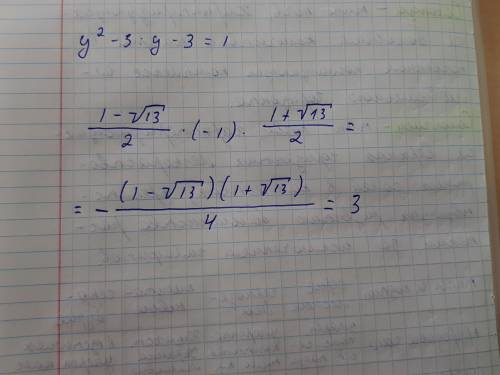 y² - 3 : y - 3 = 1
(1 - √13)/2 · (-1) · (1 + √13)/2 =
= - (1 - √13)(1 + √13)/4 = 3